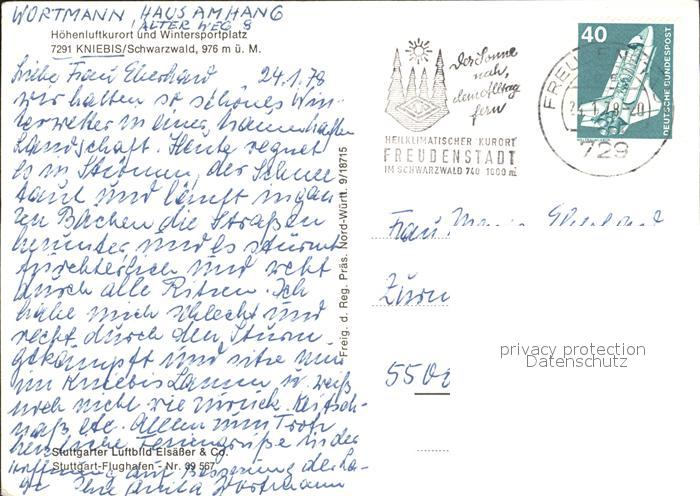 WORTMANN, HAUS AM HANG
ALTER WEG 9
Höhenluftkurort und Wintersportplatz
7291 KNIEBIS/Schwarzwald, 976 m ü. M.
Liebe Frau Eberhard 24.1.78
wir hatten so schönes Win-
terwetter in einer
Landschaft. Heute regnet
es in Strömen, der Schnee
taut und läuft in gan-
zen Bächen die Straßen
herunter und es stürmt
fürchterlich und weht
durch alle Ritzen. Ich
habe mich schlecht und
recht durch den Sturm
gekämpft und sitze nun
im Kniebis u. weiß
noch nicht wie zurück.
naß etc. Allem zum Trotz
herzliche Feriengrüße in der
Hoffnung auf Besserung der La-
ge Ihre Anita Wortmann
Stuttgarter Luftbild Elsäßer & Co.
Stuttgart-Flughafen - Nr. 39 567
Freig. d. Reg. Präs. Nord-Württ. 9/18715
Der Sonne
nah,
dem Alltag
fern
HEILKLIMATISCHER KURORT
FREUDENSTADT
IM SCHWARZWALD 740 1000 m
FREU
1.78
729
40
DEUTSCHE BUNDESPOST
Frau
550
privacy protection
Datenschutz